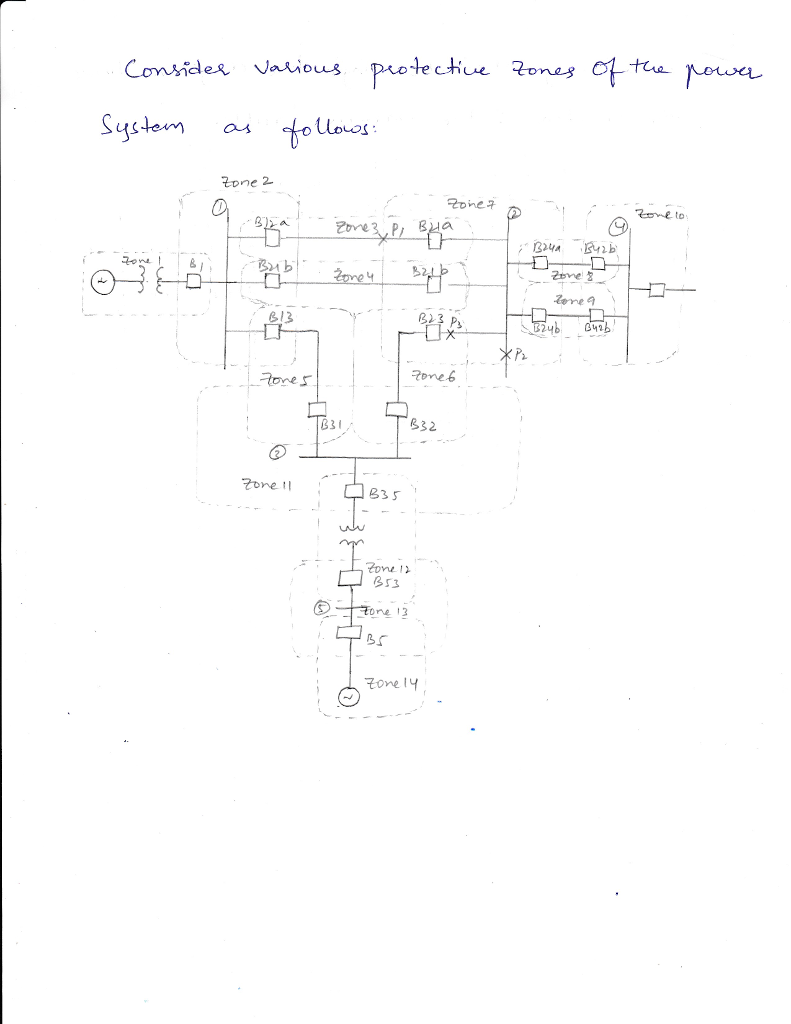 Consider various protective zones of the power
System as follows:
Zone 2
Zone 7
1
2
Zone 10
B12a
Zone 3
P1
B21a
4
Zone 1
B1
B24a
B42b
B21b
Zone 4
B21b
Zone 8
Zone 9
B13
B23
P3
B24b
B42b
P2
Zone 5
Zone 6
B31
B32
3
Zone 11
B35
Zone 12
B53
5
Zone 13
B5
Zone 14